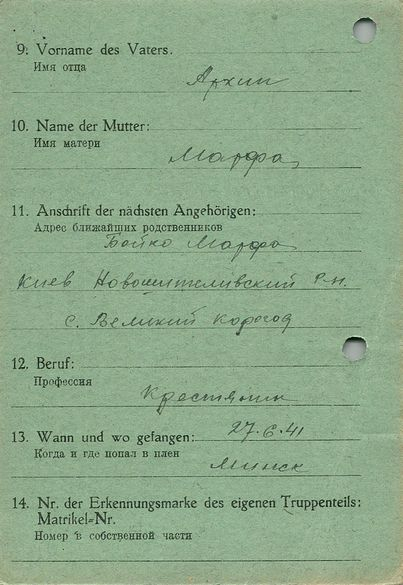 9. Vorname des Vaters.
Имя отца
Архип
10. Name der Mutter:
Имя матери
Марфа
11. Anschrift der nächsten Angehörigen:
Адрес ближайших родственников
Бойко Марфа
Киев Р-н.
с. Великий Корогод
12. Beruf:
Профессия
Крестянин
13. Wann und wo gefangen: 27.6.41
Когда и где попал в плен
Минск
14. Nr. der Erkennungsmarke des eigenen Truppenteils:
Matrikel=Nr.
Номер в собственной части